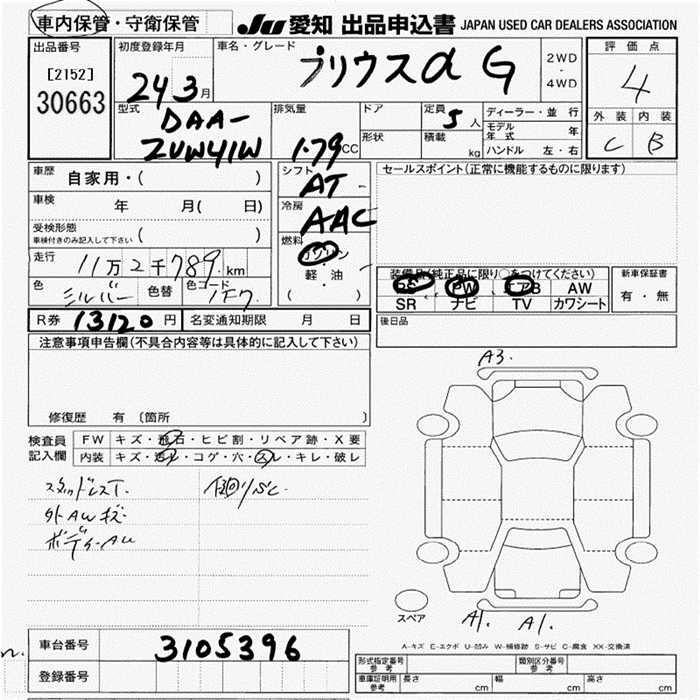 車内保管・守衛保管
JU 愛知 出品申込書 JAPAN USED CAR DEALERS ASSOCIATION
出品番号
[2152]
30663
初度登録年月
24 3月
車名・グレード
プリウスα G
2WD
・
4WD
評価点
4
外装 内装
C B
型式
DAA-
ZVW41W
排気量
1.79 CC
ドア
形状
定員 5人
積載 kg
ディーラー・並行
モデル年式 年
ハンドル 左・右
車歴 自家用・( )
車検 年 月( 日)
受検形態
車検付きのみ記入して下さい ( )
走行 11万2千789 km
色 シルバー 色替 色コード 1F7
シフト
AT
冷房
AAC
燃料
ガソリン
・
軽油
( )
セールスポイント(正常に機能するものに限ります)
装備品(純正品に限り○をつけてください)
PS PW エアB AW
SR ナビ TV カワシート
新車保証書
有・無
後日品
R券 13120 円 名変通知期限 月 日
注意事項申告欄(不具合内容等は具体的に記入して下さい)
修復歴 有 〔箇所 〕
検査員記入欄
FW キズ・飛石・ヒビ割・リペア跡・X要
内装 キズ・汚レ・コゲ・穴・スレ・キレ・破レ
スタッドレスT.
外AWキズ
ボディーAU
A3.
A1. A1.
スペア
A-キズ E-エクボ U-凹み W-補修跡 S-サビ C-腐食 XX-交換済
車台番号 3105396
登録番号
形式指定番号 参考
類別区分番号 参考
車庫証明用 参考 長さ cm 幅 cm 高さ cm